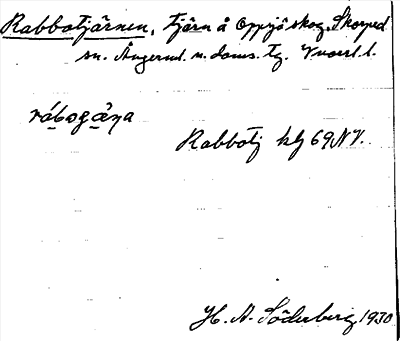 Rabbotjärnen, tjärn å Oppsjö skog, Skorped
sn. Ångerml. n. doms. tg. Vnorrl. l.
råbogåna
Rabbotj hlj 69 NV.
H. A. Söderberg 1930